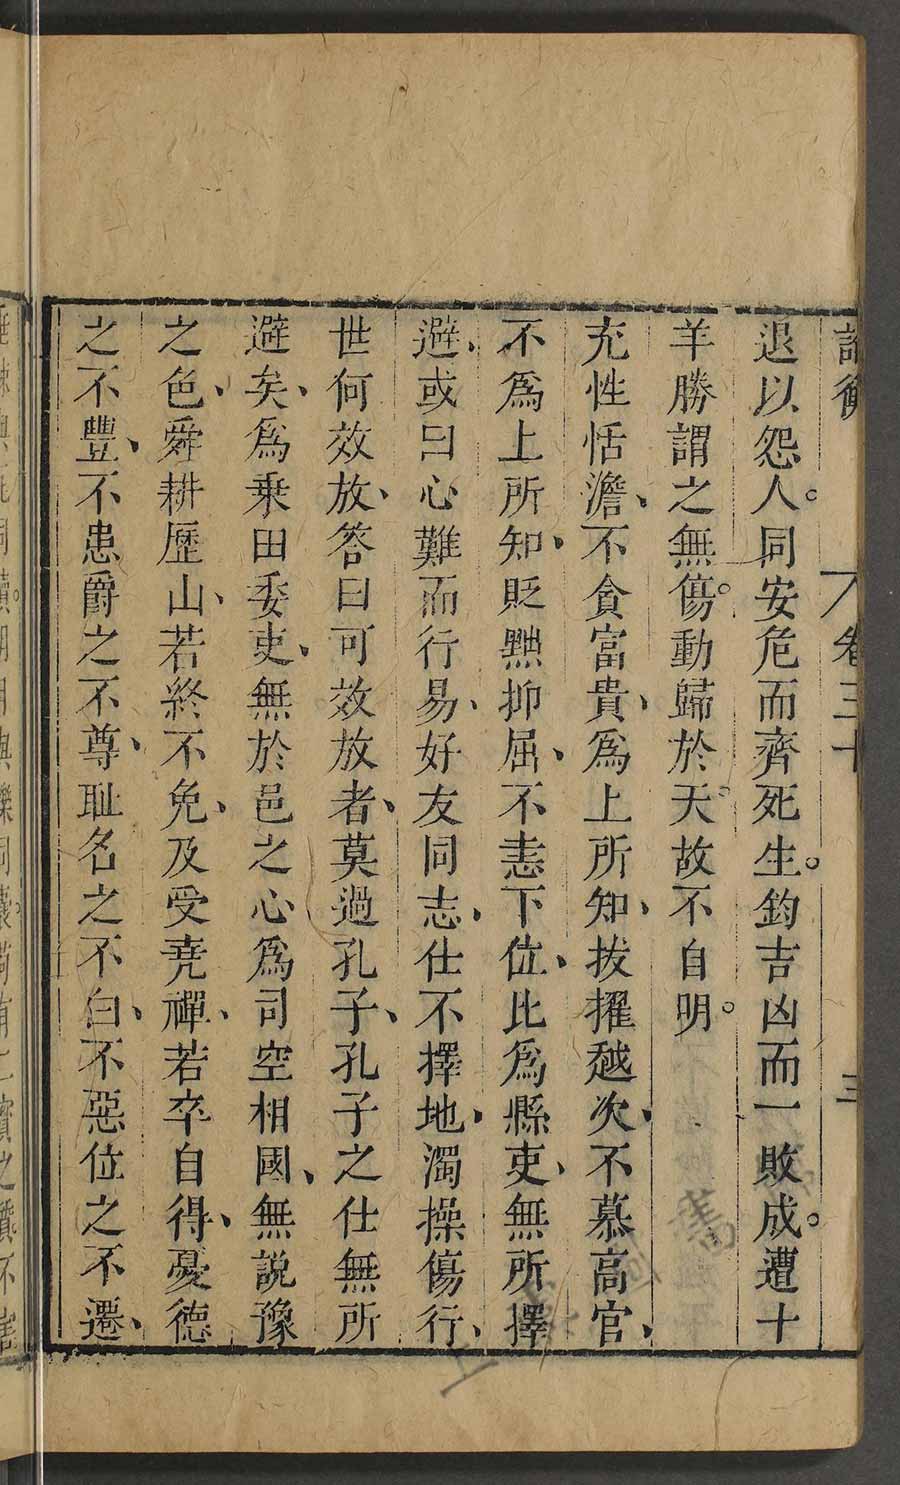 論衡　卷三十　三
退以怨人。同安危而齊死生。鈞吉凶而一敗成。遭十
羊勝謂之無傷。動歸於天。故不自明。
充性恬澹、不貪富貴、爲上所知、拔擢越次、不慕高官、
不爲上所知、貶黜抑屈、不恚下位、比爲縣吏、無所擇
避、或曰心難而行易、好友同志、仕不擇地、濁操傷行、
世何效放、答曰可效放者、莫過孔子、孔子之仕無所
避矣、爲乗田委吏、無於邑之心爲司空相國、無説豫
之色、舜耕歷山、若終不免、及受堯禪、若卒自得、憂德
之不豐、不患爵之不尊、耻名之不白、不惡位之不遷、